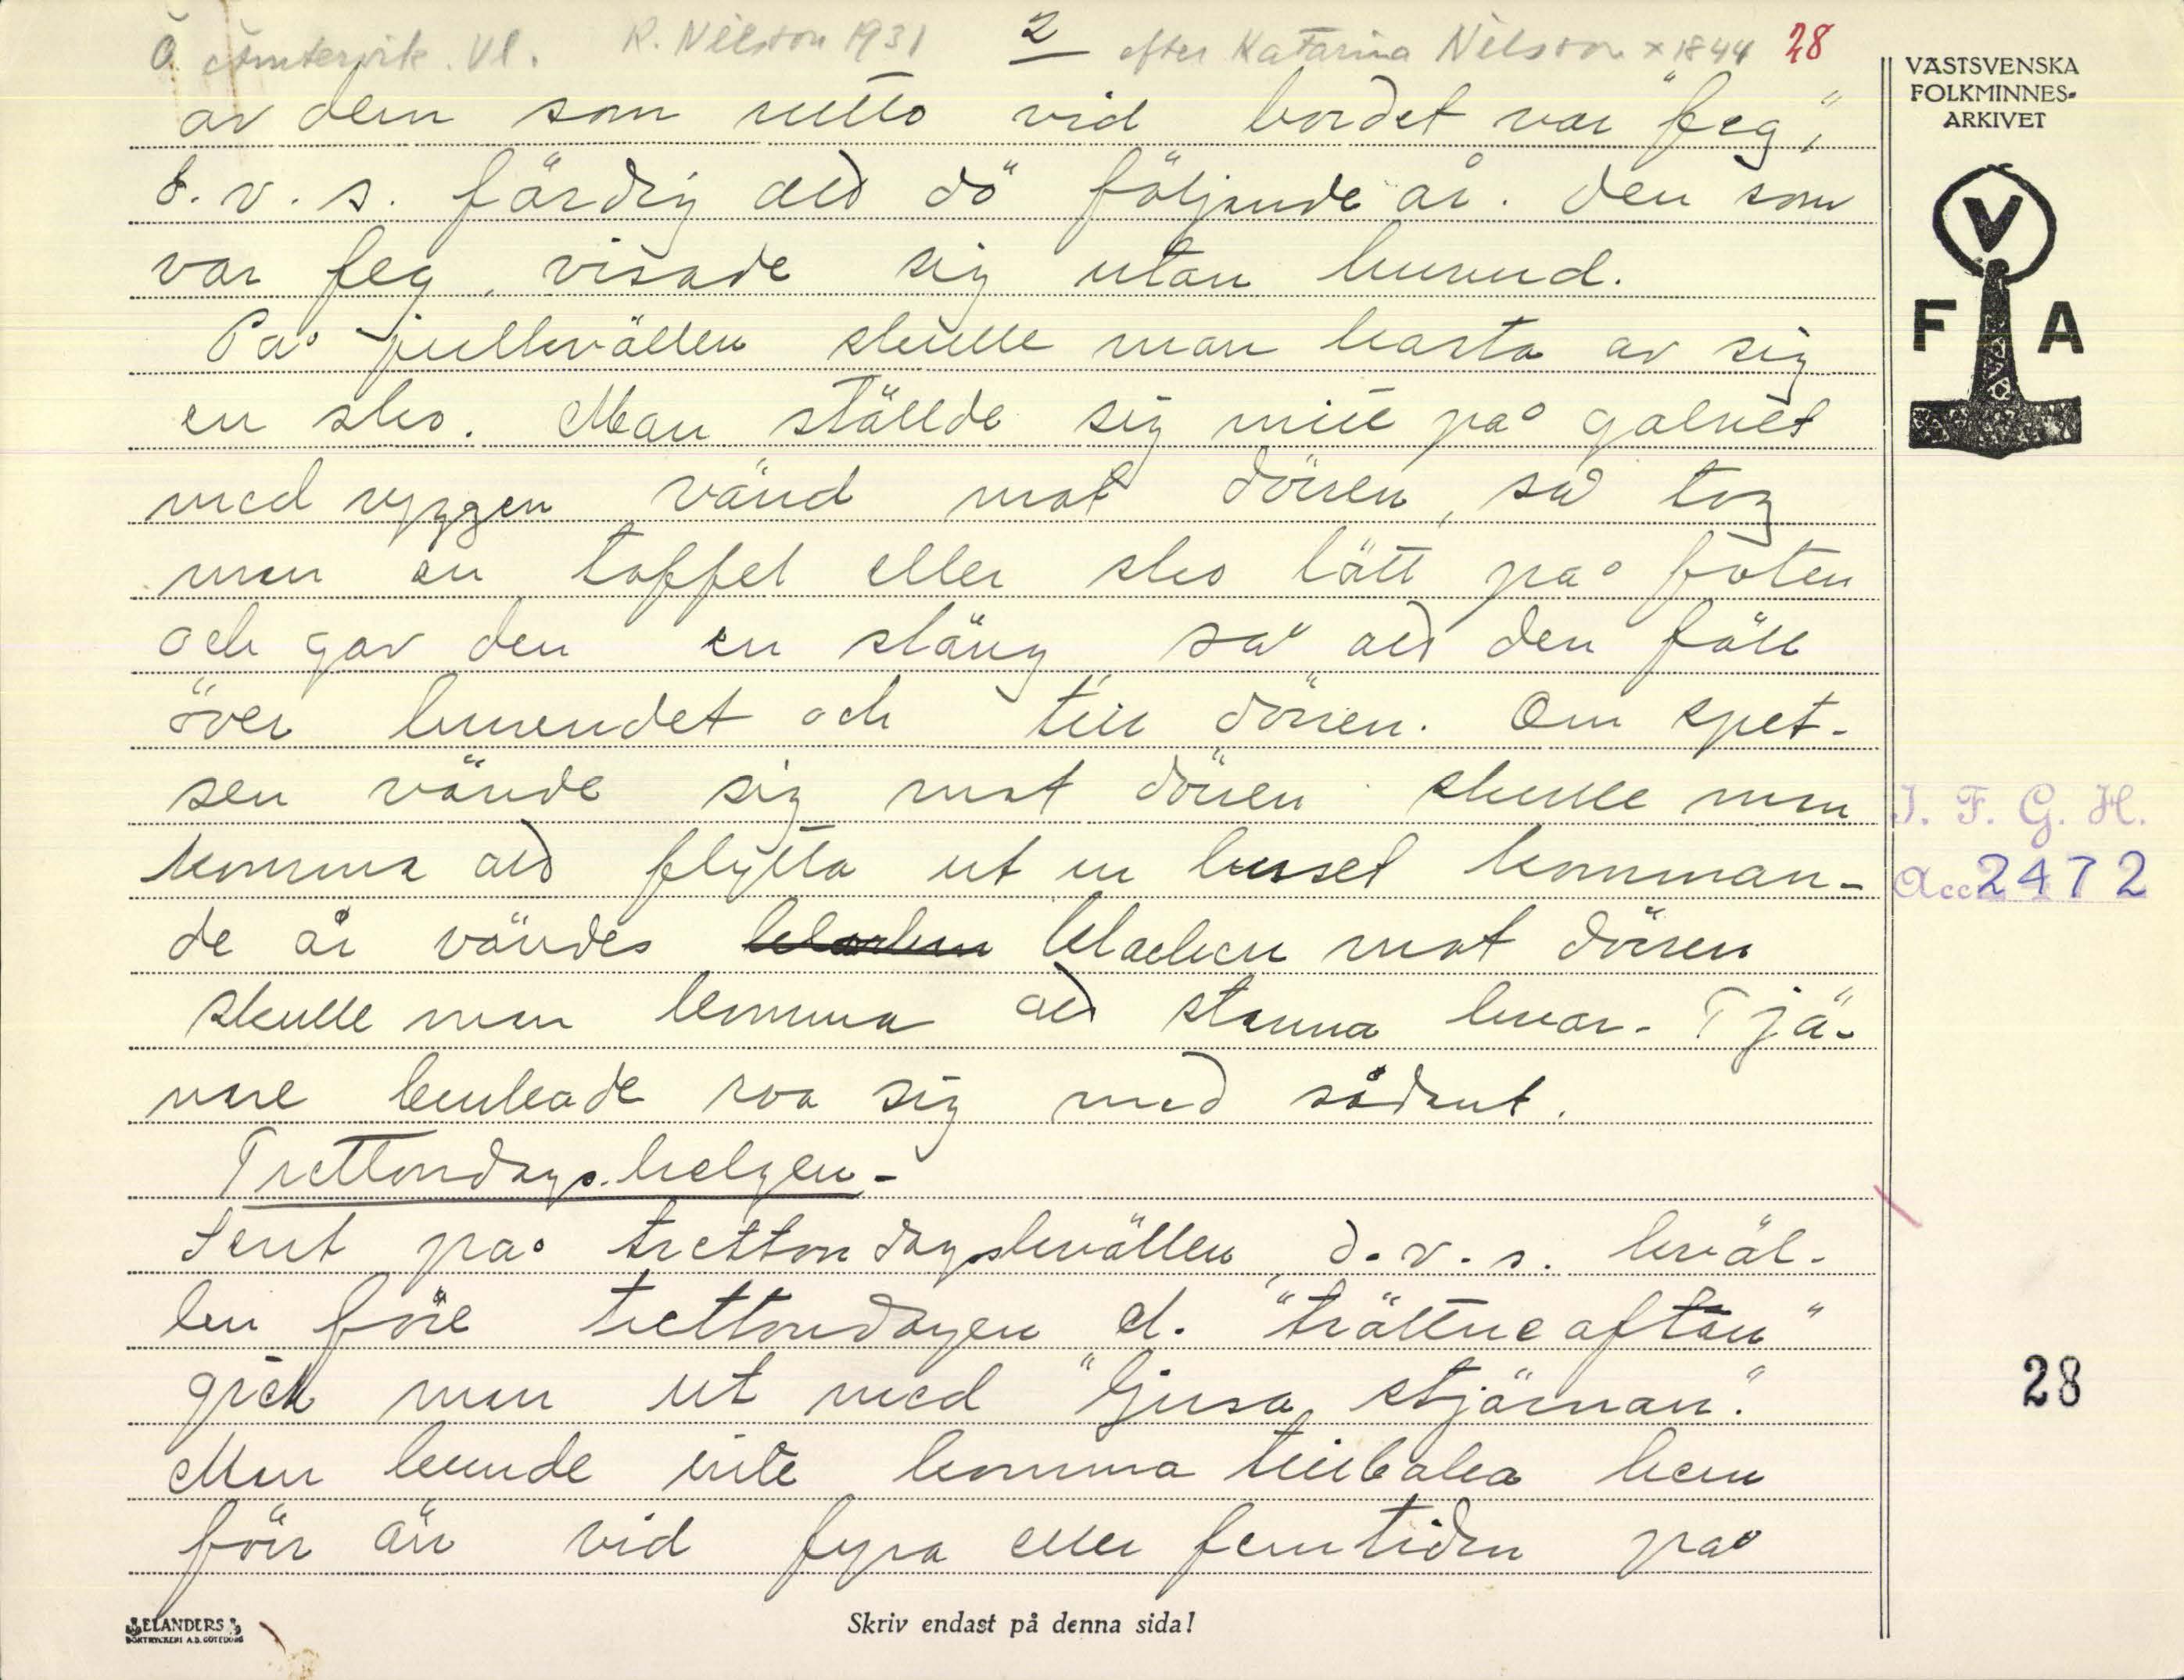 Ö. Ämtervik. Vl. R. Nilsson 1931 2 efter Katarina Nilsson x 1844 28
VÄSTSVENSKA
FOLKMINNES-
ARKIVET
V
F A
av dem som sutto vid bordet var "feg",
d.v.s. färdig att dö följande år. Den som
var feg, visade sig utan huvud.
På julkvällen skulle man kasta av sig
en sko. Man ställde sig mitt på golvet
med ryggen vänd mot dörren, så tog
man en toffel eller sko lätt på foten
och gav den en släng så att den föll
över huvudet och till dörren. Om spet-
sen vände sig mot dörren skulle man
komma att flytta ut ur huset komman-
de år vändes klacken mot dörren
skulle man komma att stanna kvar. Tjä-
nare brukade roa sig med sådant.
Trettondagshelgen.
Sent på trettondagskvällen, d.v.s. kväl-
len före trettondagen el. "trättneaftan"
gick man ut med "ljusa stjärnan".
Man kunde inte komma tillbaka hem
förr än vid fyra eller femtiden på
I. F. G. H.
Acc 2472
28
ELANDERS
BOKTRYCKERI A.B. GÖTEBORG
Skriv endast på denna sida!